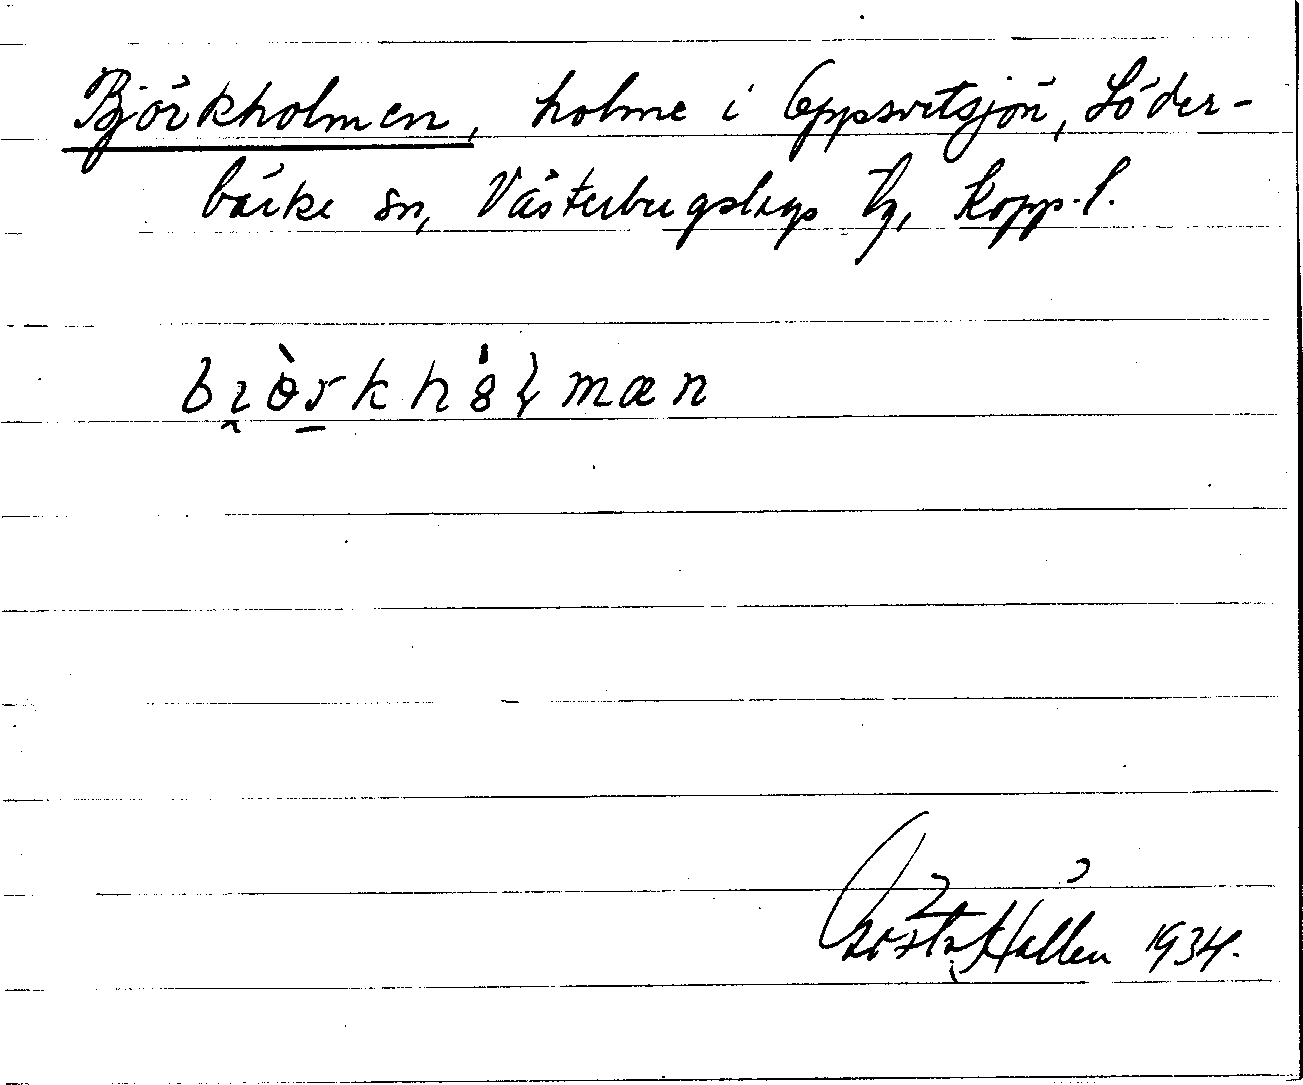 Björkholmen, holme i Oppsvetsjön, Söder-
bärke sn, Västerbergslags tg, Kopp. l.
bi̯ɵ̀r̠khóɭmæn
Gösta Hallén 1934.